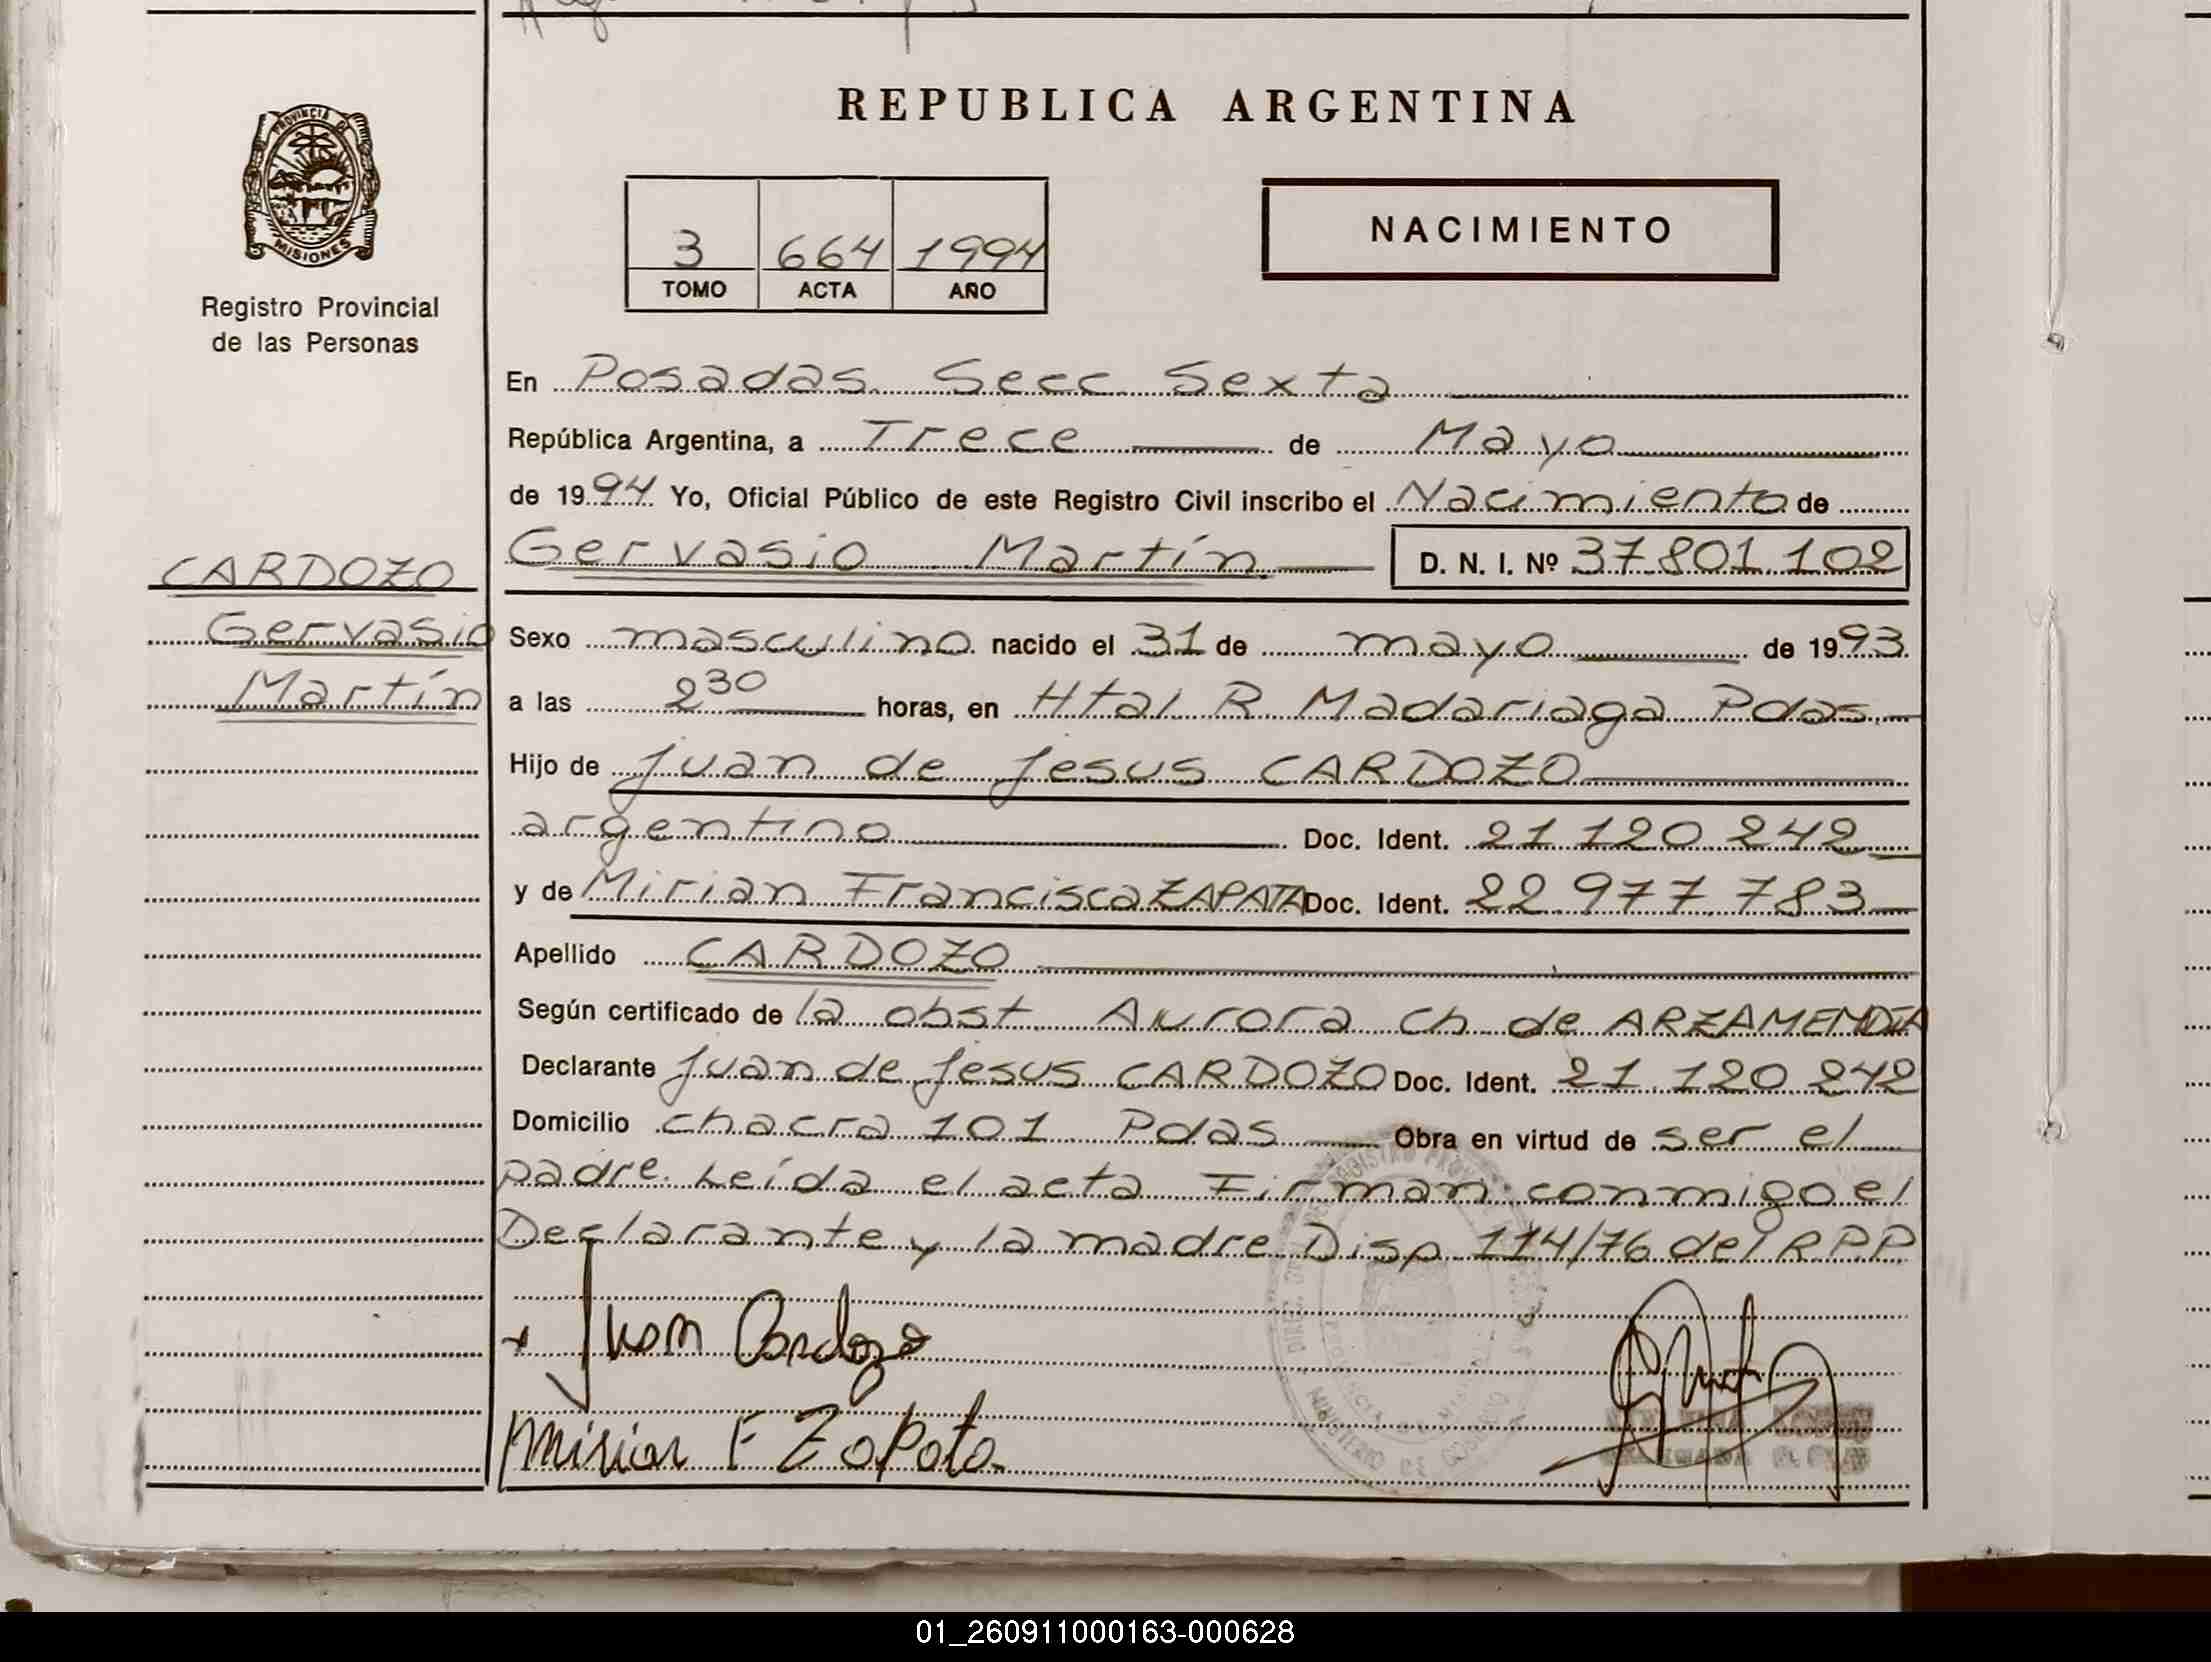 REPUBLICA ARGENTINA
PROVINCIA DE
MISIONES
Registro Provincial
de las Personas
3 664 1994
TOMO ACTA AÑO
NACIMIENTO
En Posadas Secc Sexta
República Argentina, a Trece de Mayo
de 1994 Yo, Oficial Público de este Registro Civil inscribo el Nacimiento de
Gervasio Martín D. N. I. Nº 37.801.102
CARDOZO
Gervasio
Martín
Sexo masculino nacido el 31 de mayo de 1993
a las 2 30 horas, en Htal R. Madariaga Pdas.
Hijo de Juan de Jesus CARDOZO
argentino Doc. Ident. 21 120 242
y de Mirian Francisca ZAPATA Doc. Ident. 22 977 783
Apellido CARDOZO
Según certificado de la obst. Aurora Ch de ARZAMENDIA
Declarante Juan de Jesus CARDOZO Doc. Ident. 21.120 242
Domicilio chacra 101 Pdas Obra en virtud de ser el
padre. Leída el acta Firman conmigo el
Declarante y la madre Disp 114/76 del RPP
x Juan Cardozo
Mirian F Zapata
01_260911000163-000628